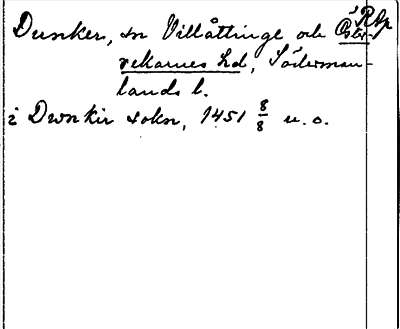 Rlp
Dunker, sn Villåttinge och Öster-
rekarnes hd, Söderman-
lands l.
i Dwnkir sokn, 1451 8/8 u. o.